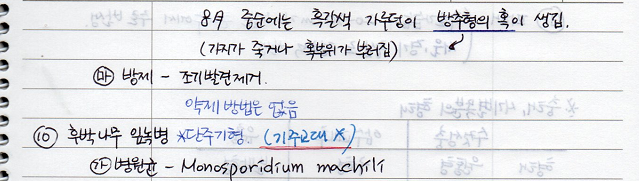 8月 중순에는 흑갈색 가루덩이 방추형의 혹이 생김.
(가지가 죽거나 혹부위가 부러짐)
㉲ 방제 - 조기발견제거.
약제 방법은 없음
⑩ 후박나무 녹병 *단주기형. (기주교대 X)
㉮ 병원균 - Monosporidium machili